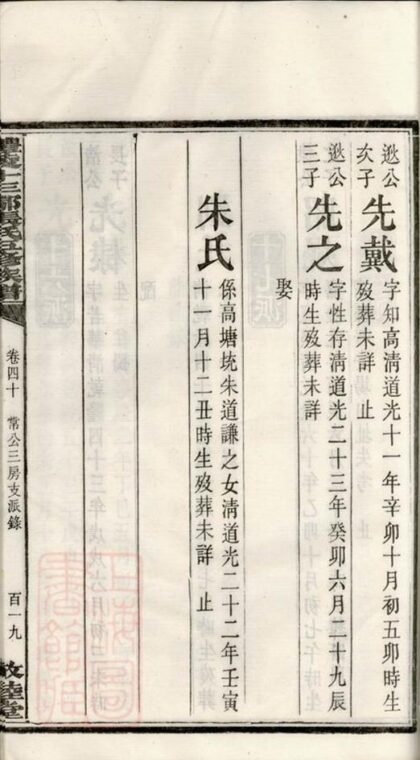 逖公次子 先戴 字知高清道光十一年辛卯十月初五卯時生
歿葬未詳 止
逖公三子 先之 字性存清道光二十三年癸卯六月二十九辰
時生歿葬未詳
娶
朱氏 係高塘坑朱道謙之女清道光二十二年壬寅
十一月十二丑時生歿葬未詳 止
十三都張氏五修族譜
卷四十 常公三房支派錄
百一九
敦睦堂